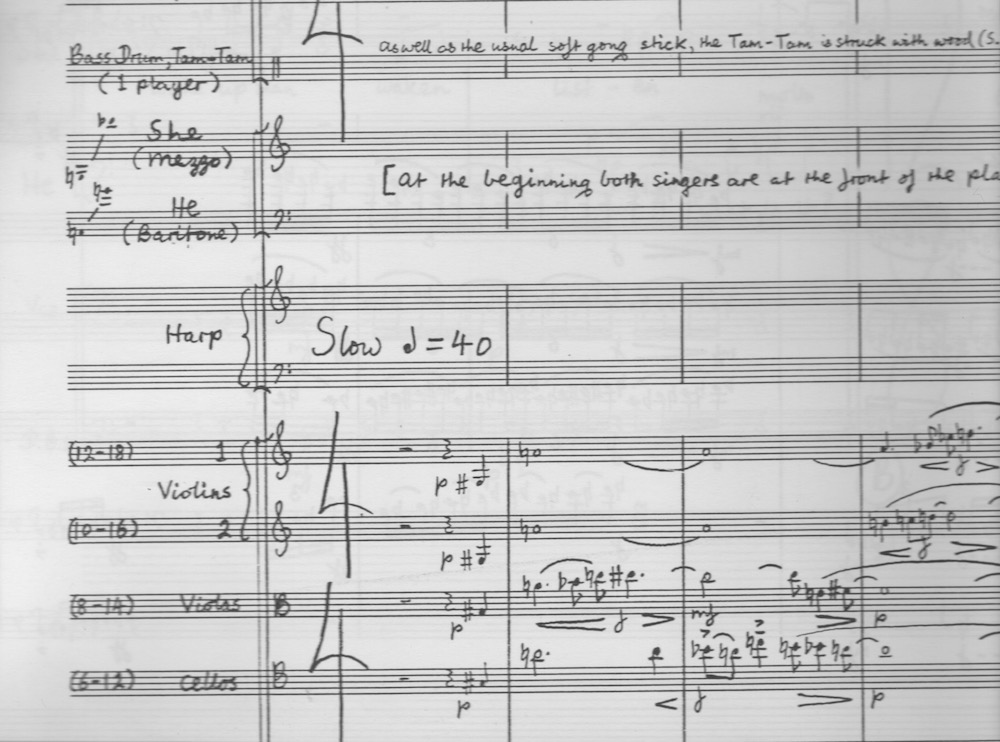 as well as the usual soft gong stick, the Tam-Tam is struck with wood (s.
Bass Drum, Tam-Tam
(1 player)
She
(mezzo)
[at the beginning both singers are at the front of the pla
He
(Baritone)
Harp
Slow = 40
(12-18) 1
p
f
Violins
(10-16) 2
p
f
(8-14) Violas
p
f
mf
p
(6-12) Cellos
p
f
p